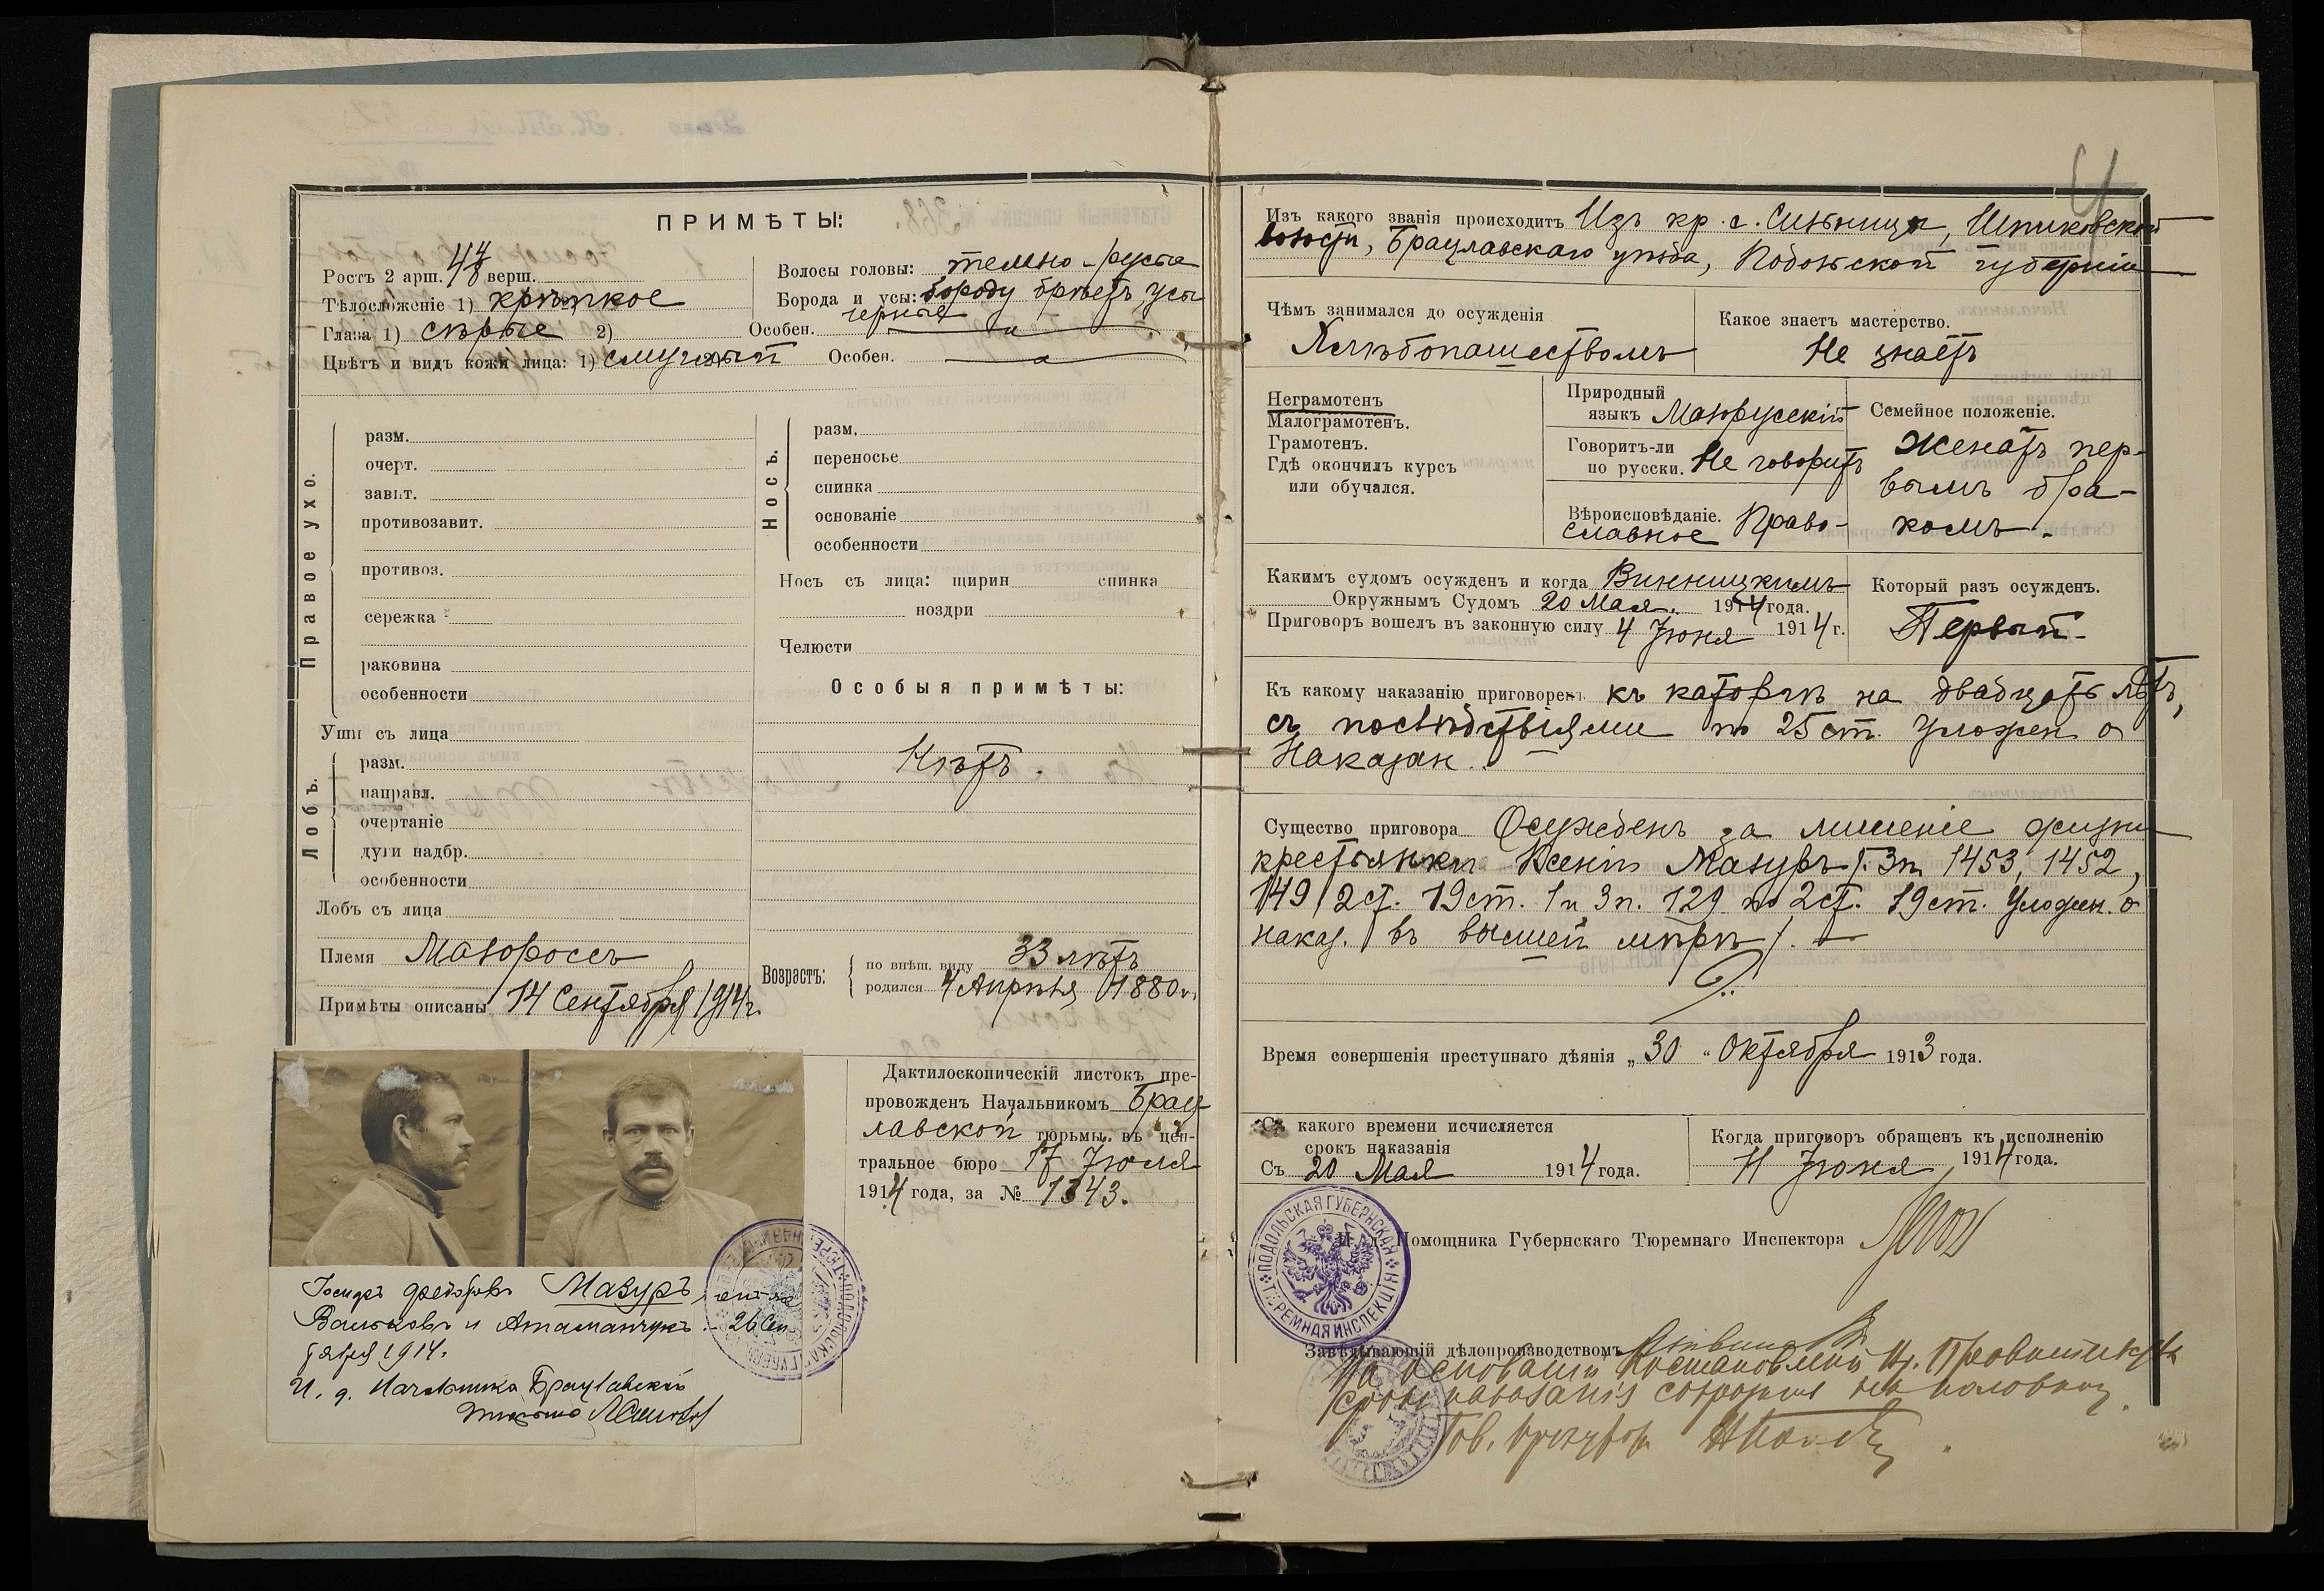 ПРИМѢТЫ:
Ростъ 2 арш. 4 4/8 верш.
Тѣлосложеніе 1) крѣпкое
Глаза 1) сѣрые 2) Особен. "
Цвѣтъ и видъ кожи лица: 1) смуглый Особен. "
Волосы головы: темно-русые
Борода и усы: бороду брѣетъ, усы
черные
Правое ухо.
разм.
очерт.
завит.
противозавит.
противоз.
сережка
раковина
особенности
Уши съ лица
Лобъ.
разм.
направл.
очертаніе
дуги надбр.
особенности
Лобъ съ лица
Племя Малороссъ
Примѣты описаны 14 Сентября 1914 г.
Носъ.
разм.
переносье
спинка
основаніе
особенности
Носъ съ лица: щирин спинка
ноздри
Челюсти
Особыя примѣты:
Нѣтъ.
Возрастъ:
по внѣш. виду 33 лѣтъ
родился 4 Апрѣля 1880 г.
Дактилоскопическій листокъ пре-
провожденъ Начальникомъ Брац-
лавской тюрьмы въ цен-
тральное бюро 17 Іюля
1914 года, за № 1343.
Іосифъ Федоровъ Мазуръ, онъ же
Вальковъ и Атаманчукъ. 26 Сен
тября 1914.
И. д. Начальника Брацлавской
тюрьмы
4
Изъ какого званія происходитъ Изъ кр. с. Сильница, Шпиковской
волости, Брацлавскаго уѣзда, Подольской губерніи
Чѣмъ занимался до осужденія
Хлѣбопашествомъ
Какое знаетъ мастерство.
Не знаетъ
Неграмотенъ
Малограмотенъ.
Грамотенъ.
Гдѣ окончилъ курсъ
или обучался.
Природный
языкъ Малорусскій
Говоритъ-ли
по русски. Не говоритъ
Вѣроисповѣданіе. Право-
славное
Семейное положеніе.
Женатъ пер-
вымъ бра-
комъ.
Какимъ судомъ осужденъ и когда Винницкимъ
Окружнымъ Судомъ 20 Мая 1914 года.
Приговоръ вошелъ въ законную силу 4 Іюня 1914 г.
Который разъ осужденъ.
Первый.
Къ какому наказанію приговоренъ къ каторгѣ на двадцать лѣтъ,
съ послѣдствіями по 25 ст. Уложен. о
Наказан.
Существо приговора Осужденъ за лишеніе жизни
крестьянки Ксеніи Мазуръ /. 3 п. 1453, 1452,
149 2 ст. 19 ст. 1 и 3 п. 129 по 2 ст. 19 ст. Уложен. о
наказ. въ высшей мѣрѣ /.
Время совершенія преступнаго дѣянія „ 30 “ Октября 1913 года.
Съ какого времени исчисляется
срокъ наказанія
Съ 20 Мая 1914 года.
Когда приговоръ обращенъ къ исполненію
11 Іюня 1914 года.
И. д. Помощника Губернскаго Тюремнаго Инспектора
ПОДОЛЬСКАЯ ГУБЕРНСКАЯ ТЮРЕМНАЯ ИНСПЕКЦІЯ
Завѣдывающій дѣлопроизводствомъ
На основаніи Постановленія Вр. Правительства
срокъ наказанія сокращенъ на половину.
Тов. прокурора